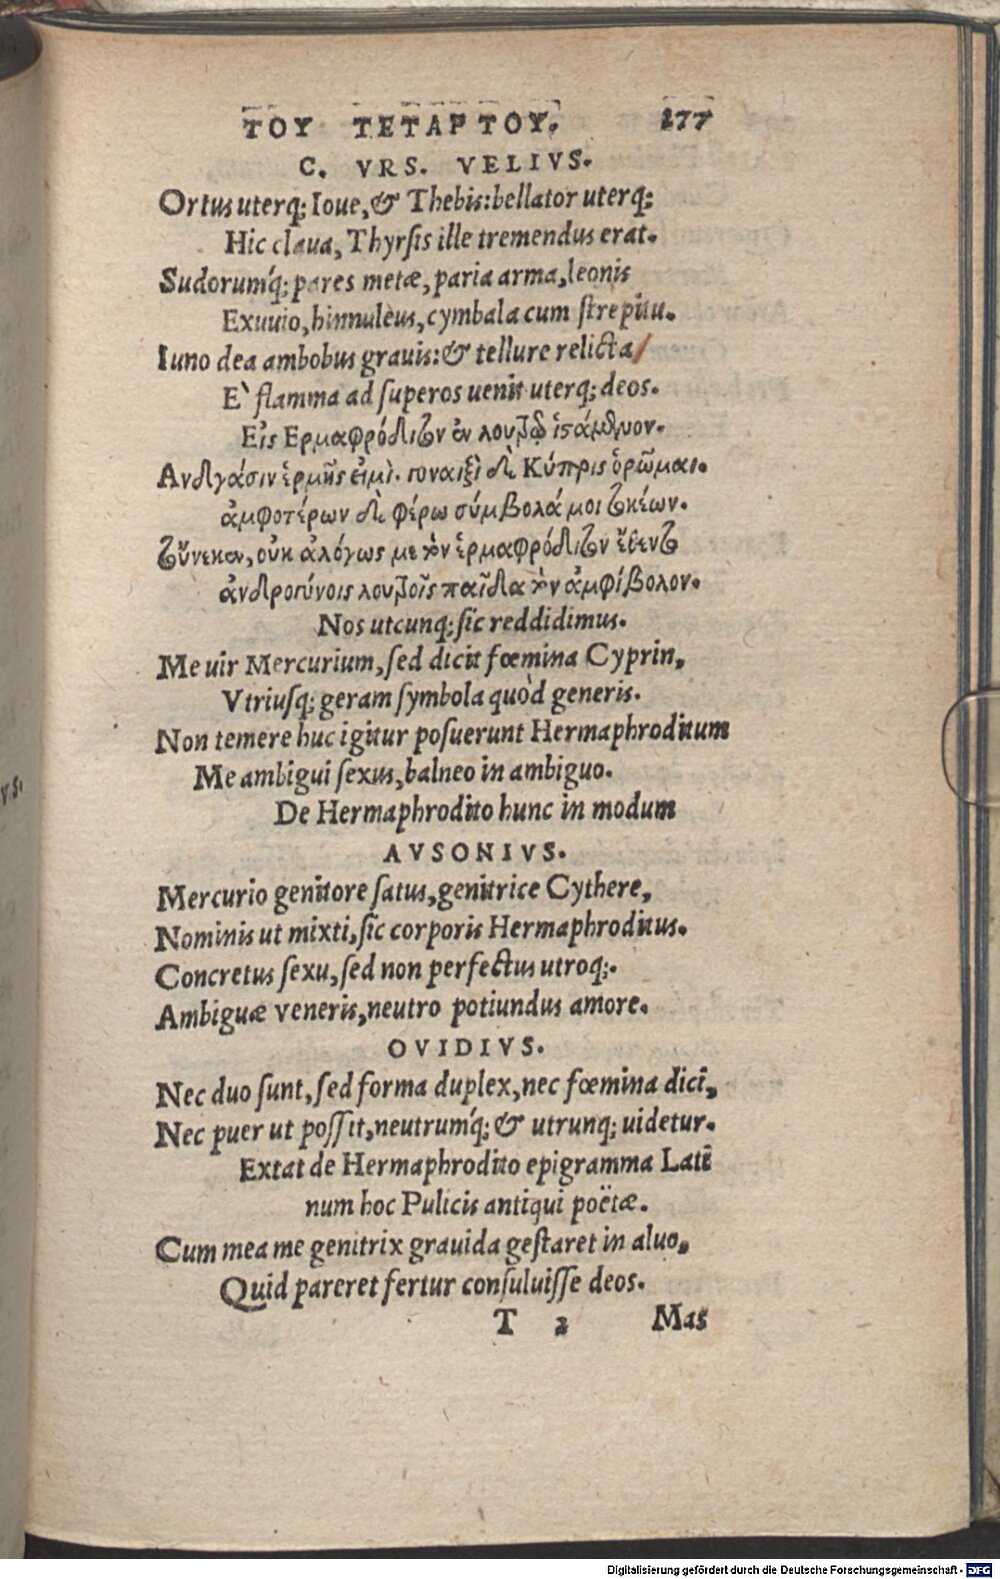 ΤΟΥ ΤΕΤΑΡΤΟΥ. 277
C. VRS. VELIVS.
Ortus uterq; Ioue, & Thebis: bellator uterq;
Hic claua, Thyrsis ille tremendus erat.
Sudorumq́; pares metæ, paria arma, leonis
Exuuio, hinnuleus, cymbala cum strepitu.
Iuno dea ambobus grauis: & tellure relicta/
E` flamma ad superos uenit uterq; deos.
Εἰς Ερμαφρόδιτον ἐν λουτρῷ ἱστάμθμον.
Ανδράσιν ἑρμῆς εἰμὶ. γυναιξὶ δὲ Κύπρις ὁρῶμαι.
ἀμφοτέρων δὲ φέρω σύμβολά μοι τοκέων.
τοὔνεκεν, οὐκ ἀλόγως με τὸν ἑρμαφρόδιτον ἔθεντο
ἀνδρογύνοις λουτροῖς παῖδα τὸν ἀμφίβολον.
Nos utcunq; sic reddidimus.
Me uir Mercurium, sed dicit fœmina Cyprin,
Vtriusq; geram symbola quòd generis.
Non temere huc igitur posuerunt Hermaphroditum
Me ambigui sexus, balneo in ambiguo.
De Hermaphrodito hunc in modum
AVSONIVS.
Mercurio genitore satus, genitrice Cythere,
Nominis ut mixti, sic corporis Hermaphroditus.
Concretus sexu, sed non perfectus utroq;.
Ambiguæ veneris, neutro potiundus amore.
OVIDIVS.
Nec duo sunt, sed forma duplex, nec fœmina dici,
Nec puer ut possit, neutrumq́; & utrunq; uidetur.
Extat de Hermaphrodito epigramma Lati
num hoc Pulicis antiqui poëtæ.
Cum mea me genitrix grauida gestaret in aluo,
Quid pareret fertur consuluisse deos.
T 2 Mas
Digitalisierung gefördert durch die Deutsche Forschungsgemeinschaft - DFG